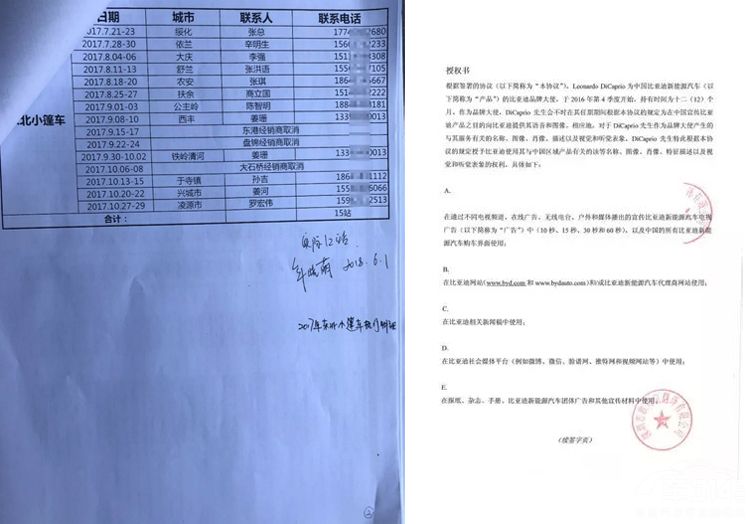 日期 城市 联系人 联系电话
2017.7.21-23 绥化 张总 177 2680
2017.7.28-30 依兰 辛明生 156 233
2017.8.04-06 大庆 李强 151 308
2017.8.11-13 舒兰 张洪语 155 105
2017.8.18-20 农安 张琪 186 667
2017.8.25-27 扶余 商立国 151 222
2017.9.01-03 公主岭 陈智明 188 181
2017.9.08-10 西丰 姜珊 133 0013
2017.9.15-17 东港经销商取消
2017.9.22-24 盘锦经销商取消
2017.9.30-10.02 铁岭清河 姜珊 133 0013
2017.10.06-08 大石桥经销商取消
2017.10.13-15 于寺镇 孙吉 186 1112
2017.10.20-22 兴城市 姜河 155 5066
2017.10.27-29 凌源市 罗宏伟 159 2513
北小篷车
合计： 15站
实际12站
2018.6.1
2017年东北小篷车
授权书
根据签署的协议（以下简称为“本协议”），Leonardo DiCaprio 为中国比亚迪新能源汽车（以
下简称为“产品”）的比亚迪品牌大使，于 2016 年第 4 季度开始，持有时间为十二（12）个
月，作为品牌大使，DiCaprio 先生会不时在其任期期间根据本协议的规定为在中国宣传比亚
迪产品之目的向比亚迪提供其语音和图像，相应地，对于 DiCaprio 先生作为品牌大使产生的
与其服务有关的名称、图像、肖像、描述以及视觉和听觉表象，DiCaprio 先生特此根据本协
议的规定授予比亚迪使用其与中国区域产品有关的该等名称、图像、肖像、特征描述以及视
觉和听觉表象的权利，具体如下：
A.
在通过不同电视频道、在线广告、无线电台、户外和媒体播出的宣传比亚迪新能源汽车电视
广告（以下简称为“广告”）中（10 秒、15 秒、30 秒和 60 秒），以及中国的所有比亚迪新能
源汽车购车界面使用；
B.
在比亚迪网站（www.byd.com 和 www.bydauto.com）和/或比亚迪新能源汽车代理商网站使用；
C.
在比亚迪相关新闻稿中使用；
D.
在比亚迪社会媒体平台（例如微博、微信、脸谱网、推特网和视频网站等）中使用；
E.
在报纸、杂志、手册、比亚迪新能源汽车团体广告和其他宣传材料中使用。
（续签字页）